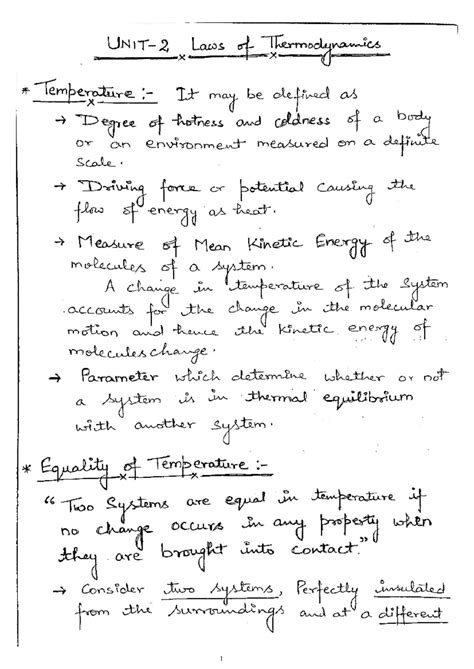 UNIT-2 Laws of Thermodynamics
* Temperature :- It may be defined as
→ Degree of hotness and coldness of a body
or an environment measured on a definite
scale.
→ Driving force or potential causing the
flow of energy as heat.
→ Measure of Mean Kinetic Energy of the
molecules of a system.
A change in temperature of the System
accounts for the change in the molecular
motion and hence the kinetic energy of
molecules change.
→ Parameter which determine whether or not
a system is in thermal equilibrium
with another system.
* Equality of Temperature :-
“Two Systems are equal in temperature if
no change occurs in any property when
they are brought into contact.”
→ Consider two systems, Perfectly insulated
from the surroundings and at a different
1